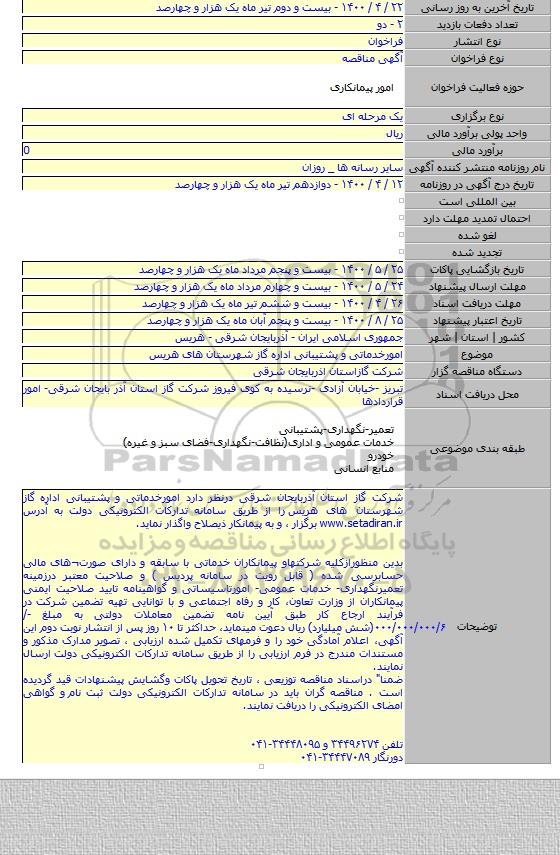 تاریخ آخرین به روز رسانی
۲۲ / ۴ / ۱۴۰۰ - بیست و دوم تیر ماه یک هزار و چهارصد
تعداد دفعات بازدید
۲ - دو
نوع انتشار
فراخوان
نوع فراخوان
آگهی مناقصه
حوزه فعالیت فراخوان
امور پیمانکاری
نوع برگزاری
یک مرحله ای
واحد پولی برآورد مالی
ریال
برآورد مالی
0
نام روزنامه منتشر کننده آگهی
سایر رسانه ها _ روزان
تاریخ درج آگهی در روزنامه
۱۲ / ۴ / ۱۴۰۰ - دوازدهم تیر ماه یک هزار و چهارصد
بین المللی است
احتمال تمدید مهلت دارد
لغو شده
تجدید شده
تاریخ بازگشایی پاکات
۲۵ / ۵ / ۱۴۰۰ - بیست و پنجم مرداد ماه یک هزار و چهارصد
مهلت ارسال پیشنهاد
۲۴ / ۵ / ۱۴۰۰ - بیست و چهارم مرداد ماه یک هزار و چهارصد
مهلت دریافت اسناد
۲۶ / ۴ / ۱۴۰۰ - بیست و ششم تیر ماه یک هزار و چهارصد
تاریخ اعتبار پیشنهاد
۲۵ / ۸ / ۱۴۰۰ - بیست و پنجم آبان ماه یک هزار و چهارصد
کشور | استان | شهر
جمهوری اسلامی ایران - آذربایجان شرقی - هریس
موضوع
امورخدماتی و پشتیبانی اداره گاز شهرستان های هریس
دستگاه مناقصه گزار
شرکت گازاستان اذربایجان شرقی
محل دریافت اسناد
تبریز -خیابان آزادی -نرسیده به کوی فیروز شرکت گاز استان آذر بایجان شرقی- امور
قراردادها
طبقه بندی موضوعی
تعمیر-نگهداری-پشتیبانی
خدمات عمومی و اداری(نظافت-نگهداری-فضای سبز و غیره)
خودرو
منابع انسانی
ParsNamadData
پایگاه اطلاع رسانی مناقصه و مزایده
توضیحات
شرکت گاز استان آذربایجان شرقی درنظر دارد امورخدماتی و پشتیبانی اداره گاز
شهرستان های هریس را از طریق سامانه تدارکات الکترونیکی دولت به آدرس
www.setadiran.ir برگزار ، و به پیمانکار ذیصلاح واگذار نماید.
بدین منظورازکلیه شرکتهای پیمانکاران خدماتی با سابقه و دارای صورت¬های مالی
حسابرسی شده ( قابل رویت در سامانه پردیس ) و صلاحیت معتبر درزمینه
تعمیرنگهداری- خدمات عمومی- امورتاسیساتی و گواهینامه تایید صلاحیت ایمنی
پیمانکاران از وزارت تعاون، کار و رفاه اجتماعی و با توانایی تهیه تضمین شرکت در
فرایند ارجاع کار طبق آیین نامه تضمین معاملات دولتی به مبلغ -/
۶/۰۰۰/۰۰۰/۰۰۰(شش میلیارد) ریال دعوت مینماید، حداکثر تا ۱۰ روز پس از انتشار نوبت دوم این
آگهی، اعلام آمادگی خود را و فرمهای تکمیل شده ارزیابی ، تصویر مدارک مذکور و
مستندات مندرج در فرم ارزیابی را از طریق سامانه تدارکات الکترونیکی دولت ارسال
نمایند.
ضمنا" دراسناد مناقصه توزیعی ، تاریخ تحویل پاکات وگشایش پیشنهادات قید گردیده
است . مناقصه گران باید در سامانه تدارکات الکترونیکی دولت ثبت نام و گواهی
امضای الکترونیکی را دریافت نمایند.
تلفن ۳۴۴۹۶۲۷۴ و ۳۴۴۴۸۰۹۵-۰۴۱
دورنگار ۳۴۴۴۷۰۸۹-۰۴۱